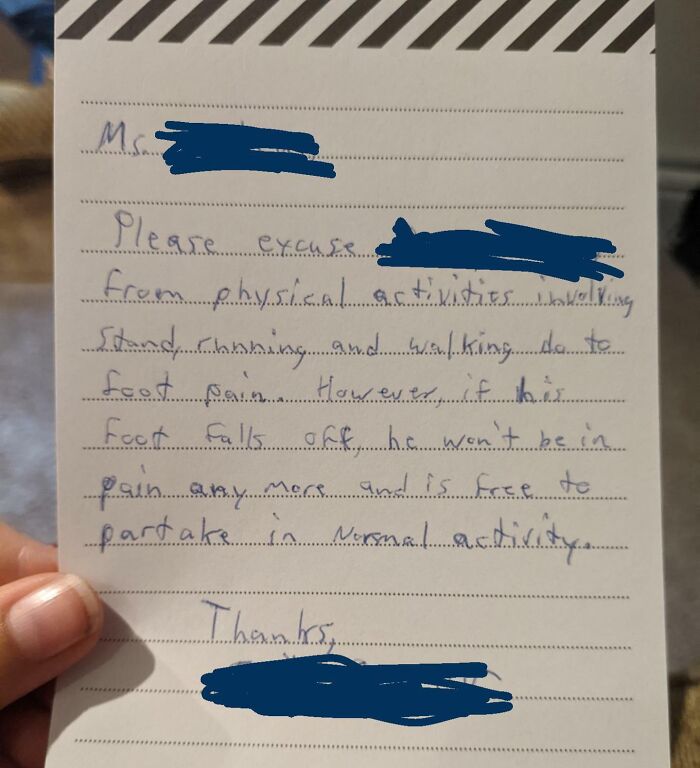 Ms.
Please excuse
from physical activities involving
Stand, running and walking do to
foot pain. However, if his
foot falls off, he won't be in
pain any more and is free to
partake in Normal activity.
Thanks,